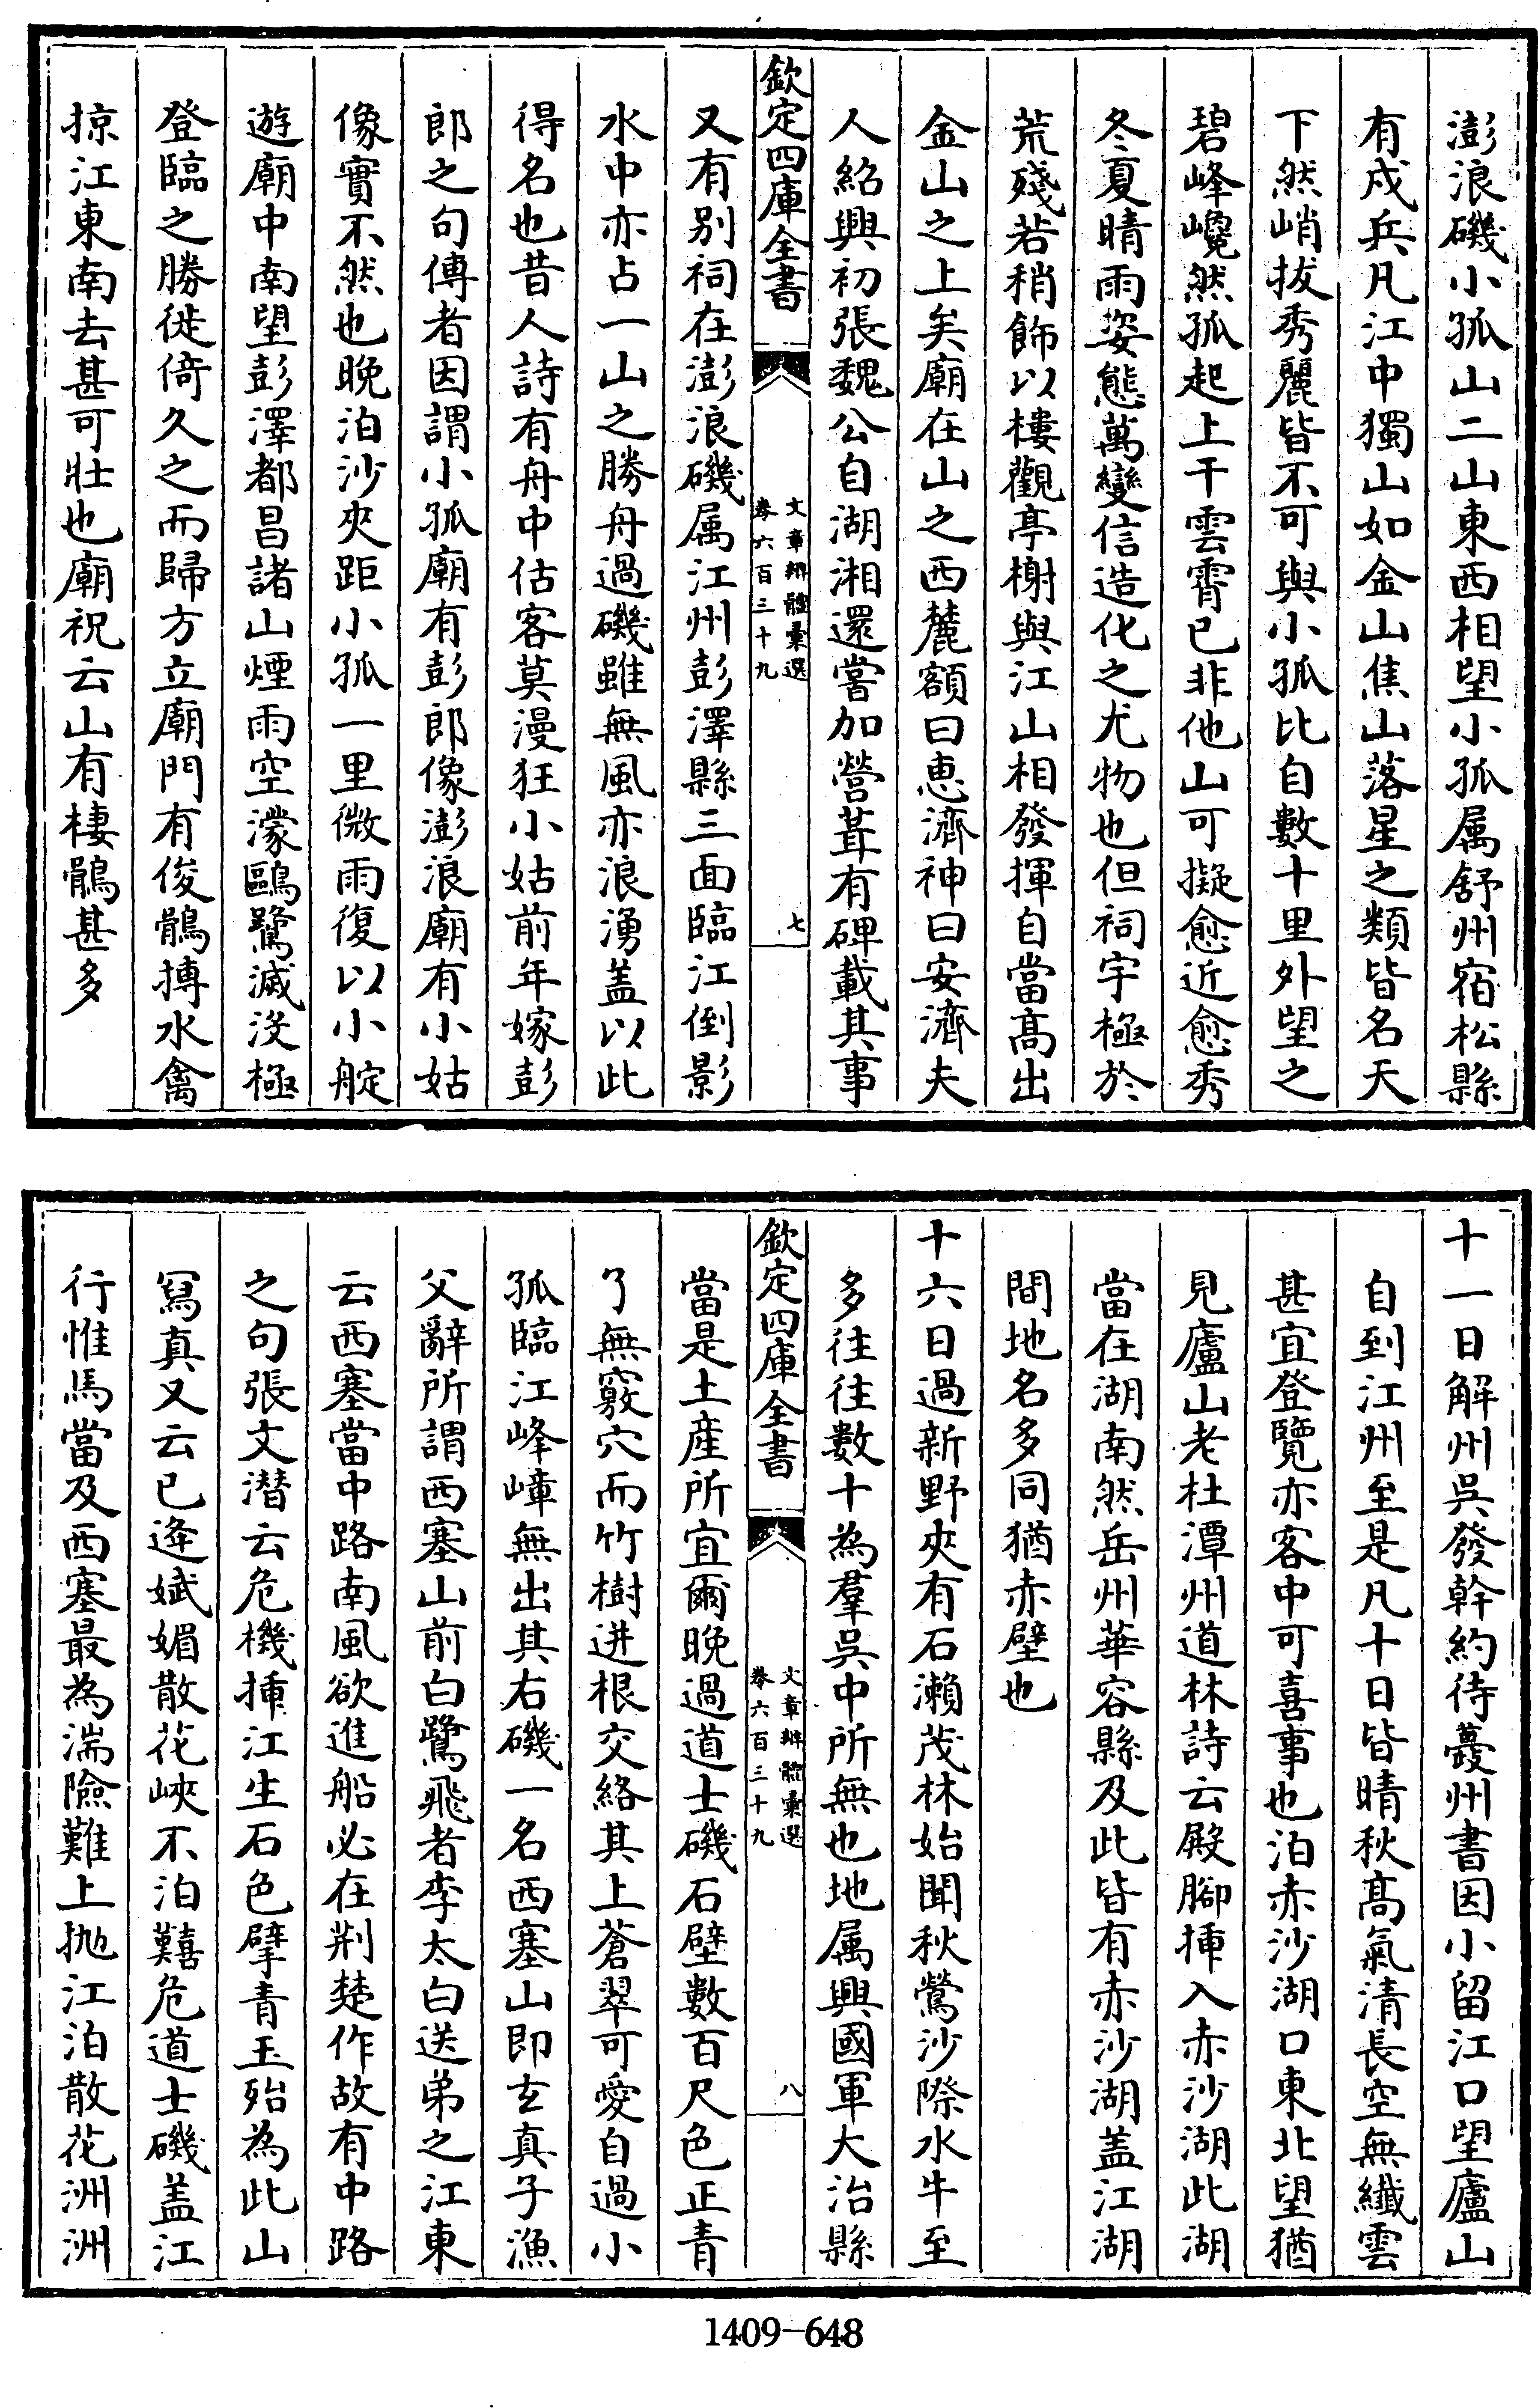 澎浪磯小孤山二山東西相望小孤属舒州宿松縣
有戍兵凡江中獨山如金山焦山落星之類皆名天
下然峭拔秀麗皆不可與小孤比自數十里外望之
碧峰巉然孤起上干雲霄已非他山可擬愈近愈秀
冬夏晴雨姿態萬變信造化之尤物也但祠宇極於
荒殘若稍飾以樓觀亭榭與江山相發揮自當高出
金山之上矣廟在山之西麓額曰惠濟神曰安濟夫
人紹興初張魏公自湖湘還嘗加營葺有碑載其事
欽定四庫全書
文章辨體彙選
卷六百三十九
七
又有别祠在澎浪磯属江州彭澤縣三面臨江倒影
水中亦占一山之勝舟過磯雖無風亦浪湧盖以此
得名也昔人詩有舟中估客莫漫狂小姑前年嫁彭
郎之句傳者因謂小孤廟有彭郎像澎浪廟有小姑
像實不然也晚泊沙夾距小孤一里微雨復以小艇
遊廟中南望彭澤都昌諸山煙雨空濛鷗鷺滅没極
登臨之勝徙倚久之而歸方立廟門有俊鶻搏水禽
掠江東南去甚可壯也廟祝云山有棲鶻甚多
十一日解州吳發幹約待蘷州書因小留江口望廬山
自到江州至是凡十日皆晴秋髙氣清長空無纖雲
甚宜登覽亦客中可喜事也泊赤沙湖口東北望猶
見廬山老杜潭州道林詩云殿腳揷入赤沙湖此湖
當在湖南然岳州華容縣及此皆有赤沙湖盖江湖
間地名多同猶赤壁也
十六日過新野夾有石瀨茂林始聞秋鶯沙際水牛至
多往往數十為羣吳中所無也地属興國軍大冶縣
欽定四庫全書
文章辨體彙選
卷六百三十九
八
當是土産所宜爾晚過道士磯石壁數百尺色正青
了無竅穴而竹樹迸根交絡其上蒼翠可愛自過小
孤臨江峰嶂無出其右磯一名西塞山即玄真子漁
父辭所謂西塞山前白鷺飛者李太白送弟之江東
云西塞當中路南風欲進船必在荆楚作故有中路
之句張文潛云危機揷江生石色擘青玉殆為此山
冩真又云已逄娬媚散花峽不泊囏危道士磯盖江
行惟馬當及西塞最為湍險難上抛江泊散花洲洲
1409-648